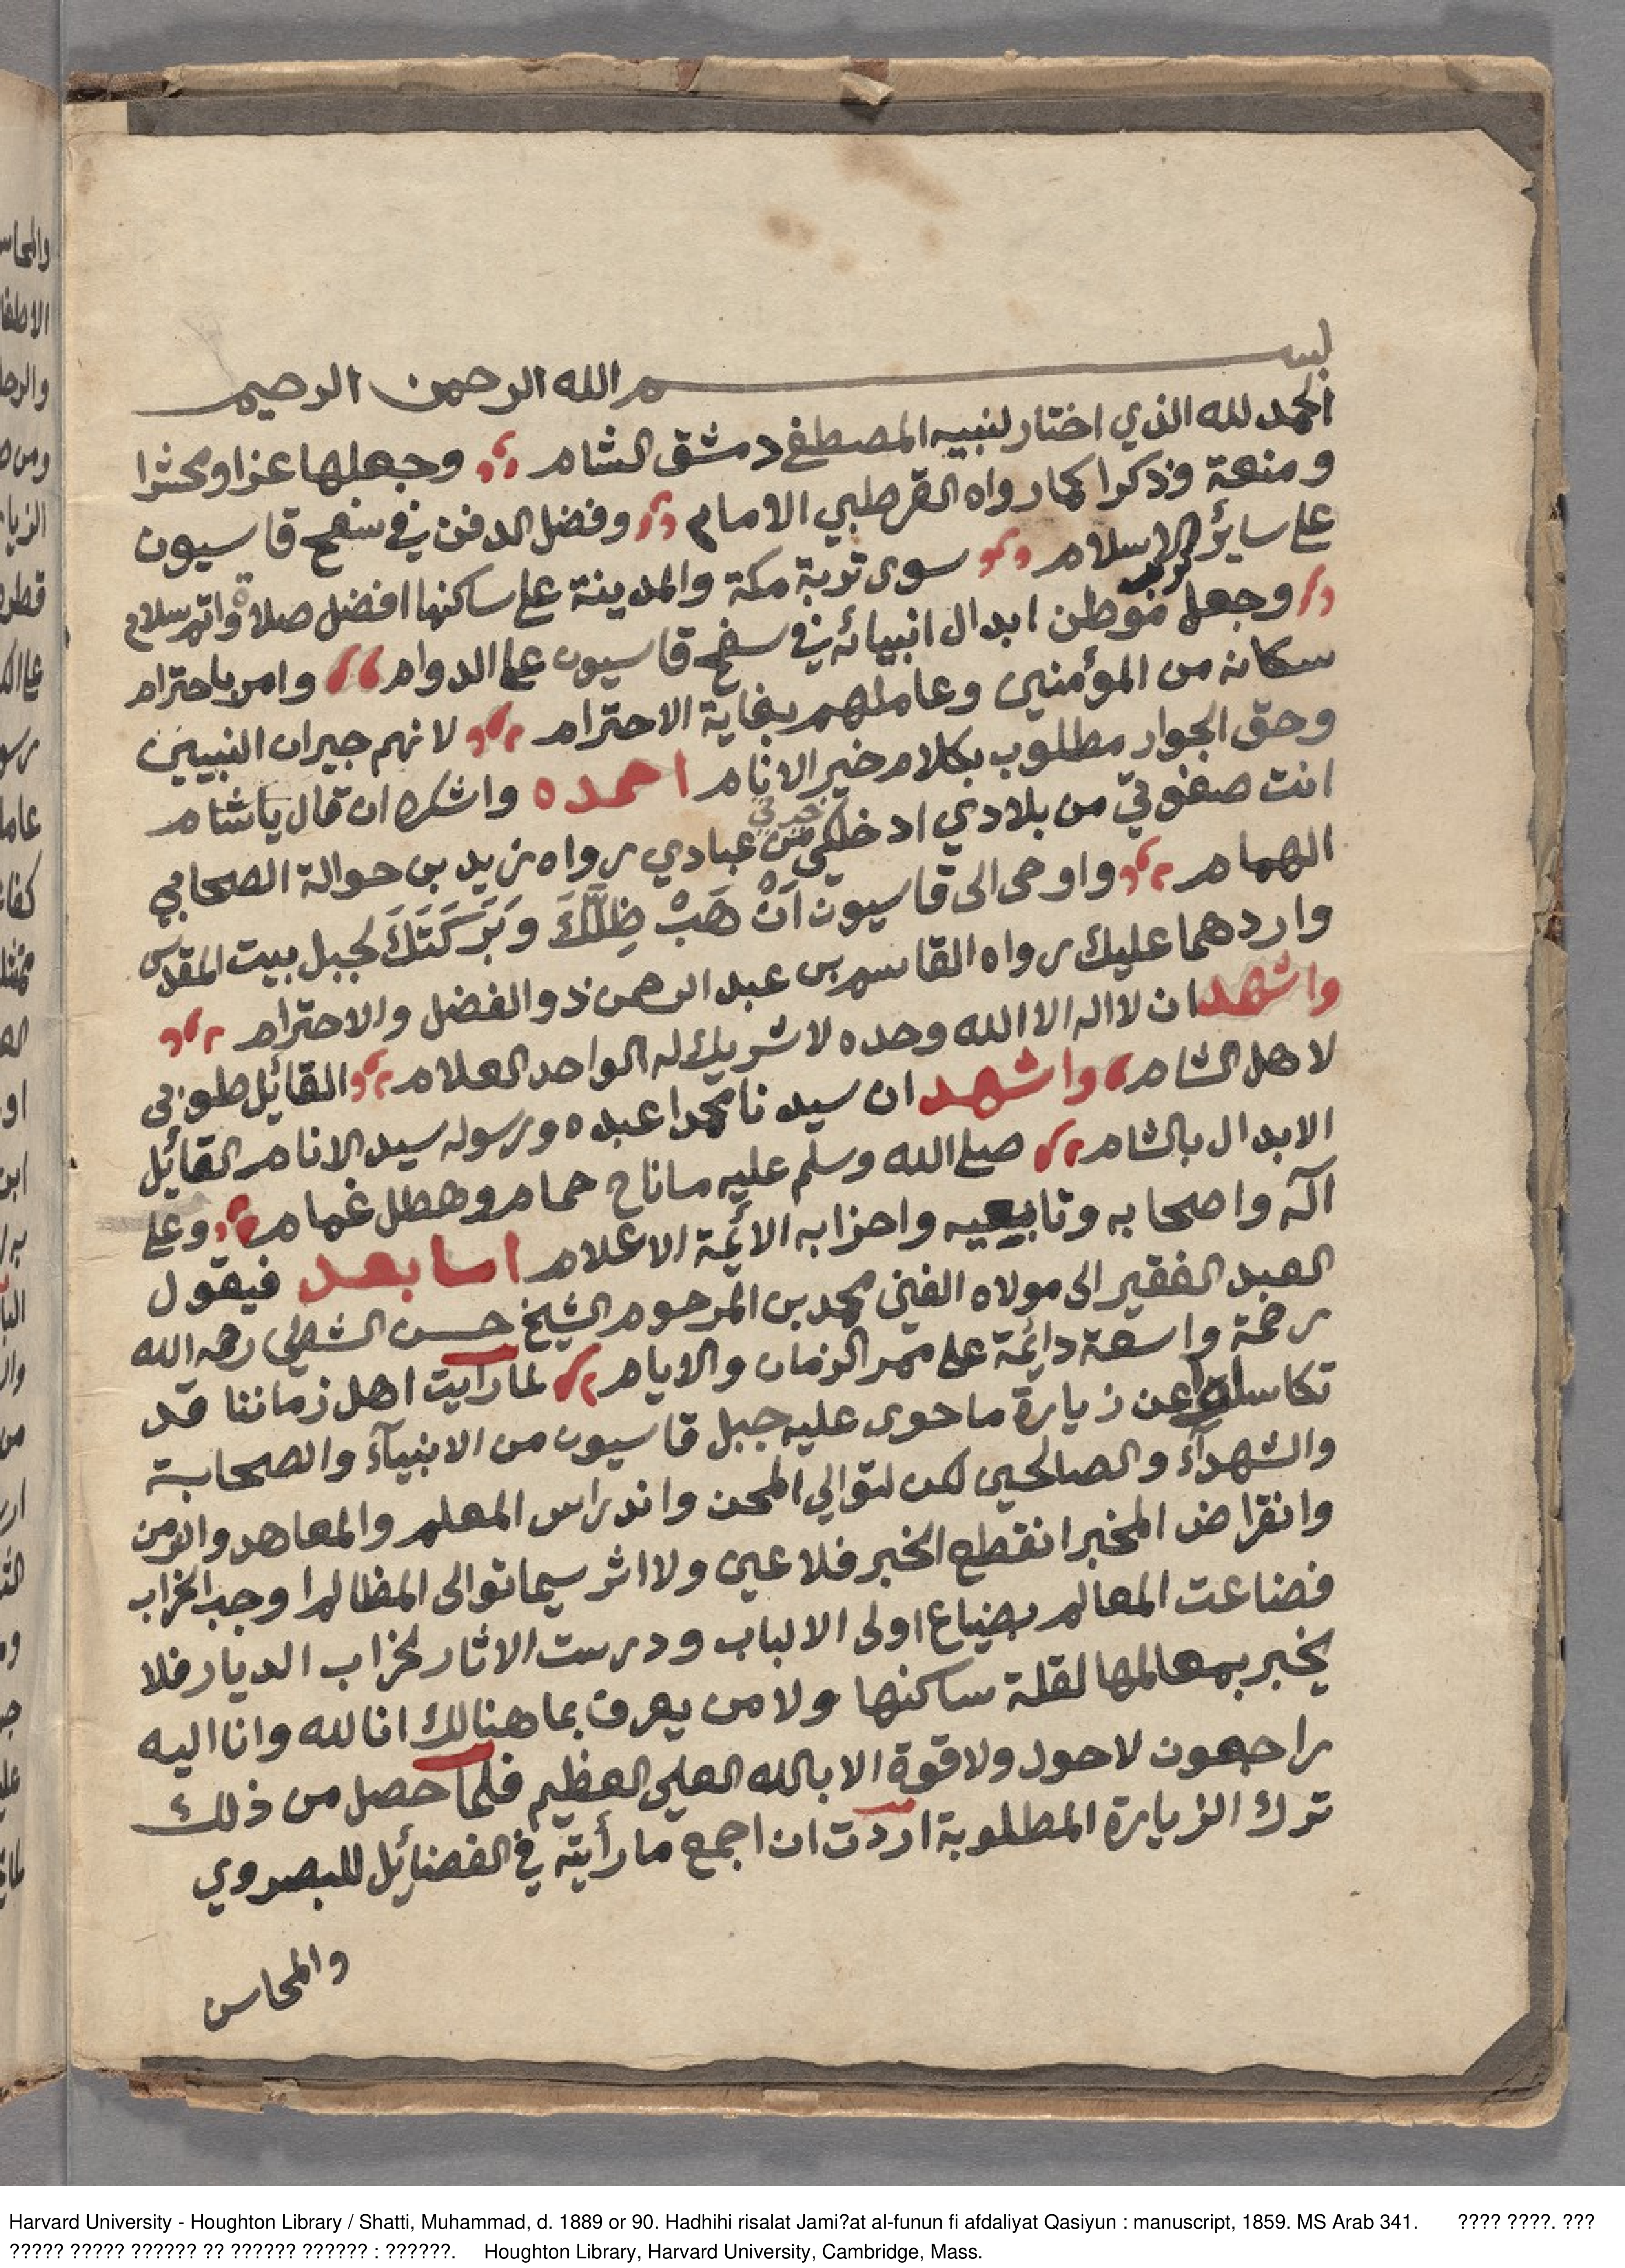 بسم الله الرحمن الرحيم
الحمد لله الذي اختار لنبيه المصطفى دمشق الشام وجعلها عزا ومحشرا
ومنعة وذكرا كما رواه القرطبي الامام وفضل الدفن في سفح قاسيون
على سائر الاسلام سوى تربة مكة والمدينة على ساكنها افضل صلاة واتم سلام
وجعل موطن ابدال انبيائه في سفح قاسيون على الدوام وامر باحترام
سكانه من المؤمنين وعاملهم بغاية الاحترام لانهم جيران النبيين
وحق الجوار مطلوب بكلام خير الانام احمده واشكره ان قال يا شام
انت صفوتي من بلادي ادخلكي خيرتي من عبادي رواه زيد بن حوالة الصحابي
الهمام واوحى الى قاسيون اَنْ هَبْ ظِلَّكَ وَبَرَكَتَكَ لجبل بيت المقدس
واردهما عليك رواه القاسم بن عبد الرحمن ذو الفضل والاحترام
واشهد ان لا اله الا الله وحده لا شريك له الواحد العلام القائل طوبى
لاهل الشام واشهد ان سيدنا محمدا عبده ورسوله سيد الانام القائل
الابدال بالشام صلى الله وسلم عليه ما ناح حمام وهطل غمام وعلى
آله واصحابه وتابعيه واحزابه الأئمة الاعلام اما بعد فيقول
العبد الفقير الى مولاه الغني محمد بن المرحوم الشيخ حسن الشطي رحمه الله
رحمة واسعة دائمة على ممر الزمان والايام لما رأيت اهل زماننا قد
تكاسلوا عن زيارة ما حوى عليه جبل قاسيون من الانبيآء والصحابة
والشهدآء والصالحين لكن لتوالي المحن واندراس المعلم والمعاهد والزمن
وانقراض المخبر انقطع الخبر فلا عين ولا اثر سيما توالى المظالم اوجب الخراب
فضاعت المعالم بضياع اولى الالباب ودرست الاثار لخراب الديار فلا
يخبر بمعالمها لقلة ساكنها ولا من يعرف بما هنالك انا لله وانا اليه
راجعون لا حول ولا قوة الا بالله العلى العظيم فلما حصل من ذلك
ترك الزيارة المطلوبة اردت ان اجمع ما رأيته في الفضائل للبصروي
والمحاسن
Harvard University - Houghton Library / Shatti, Muhammad, d. 1889 or 90. Hadhihi risalat Jami?at al-funun fi afdaliyat Qasiyun : manuscript, 1859. MS Arab 341. ???? ????. ???
????? ????? ?????? ?? ?????? ?????? : ??????. Houghton Library, Harvard University, Cambridge, Mass.